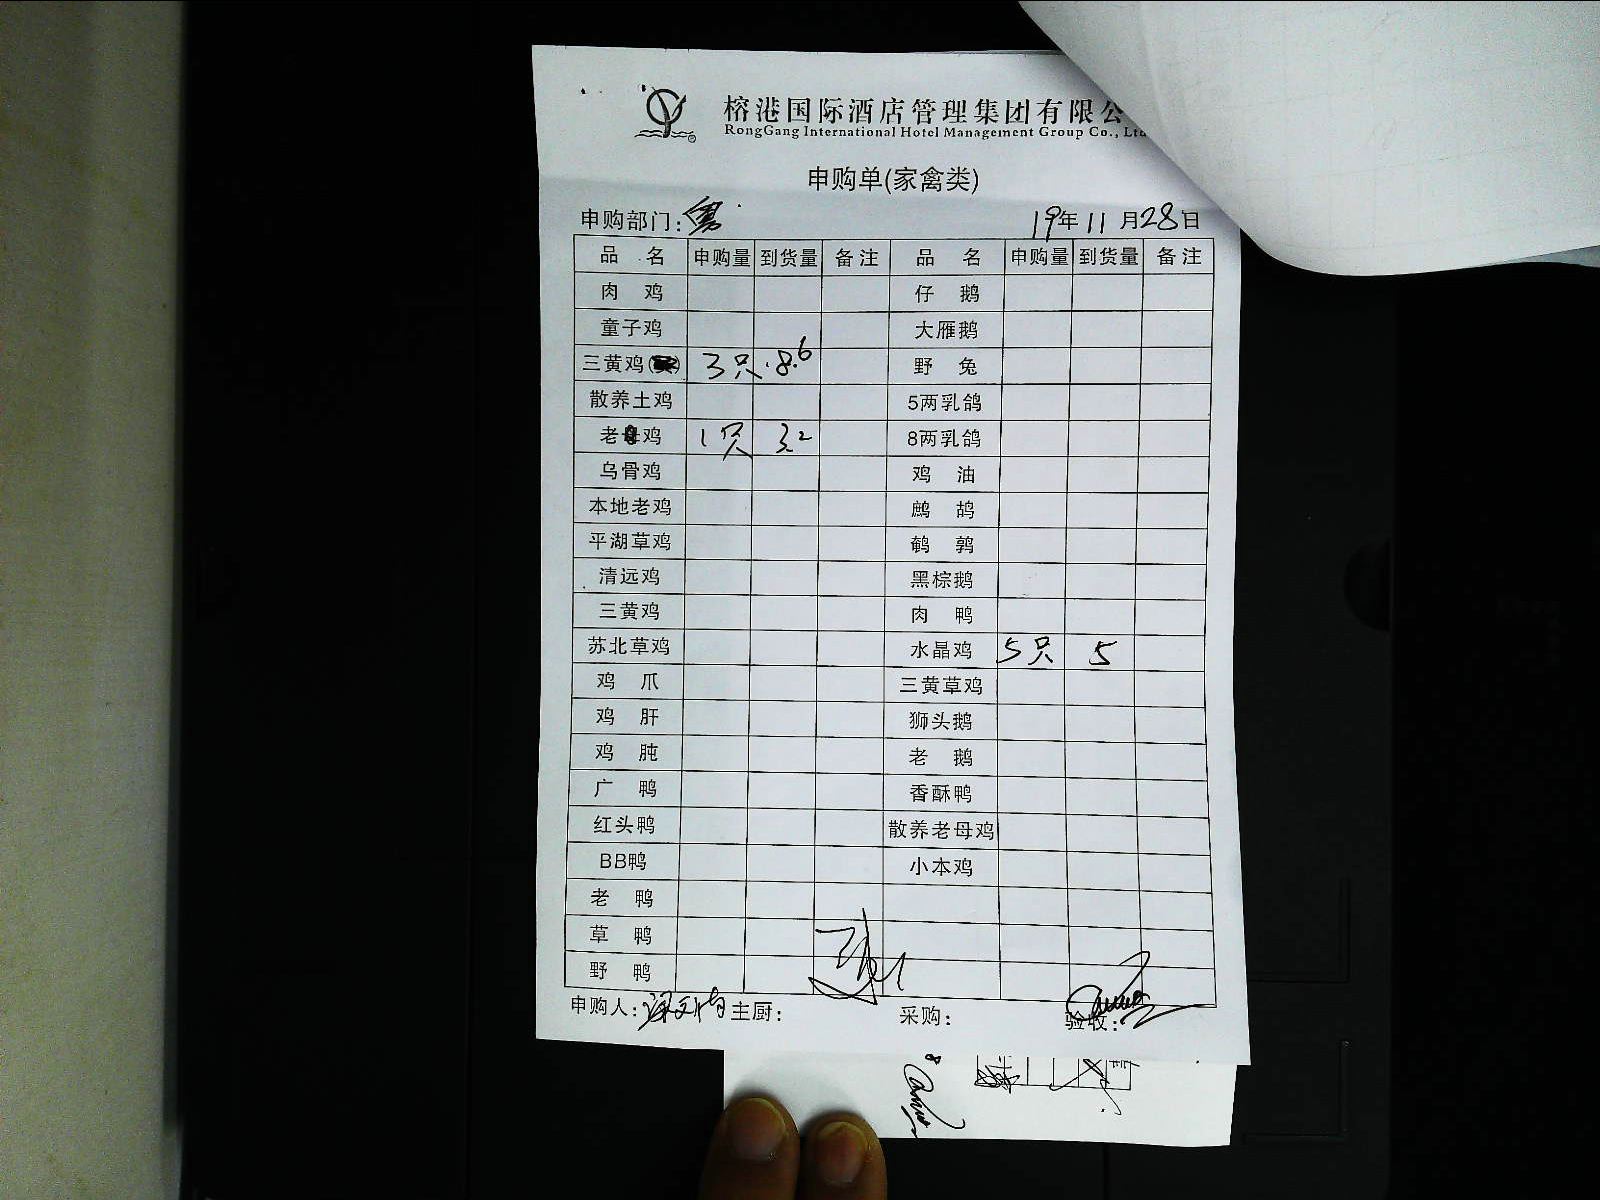 榕港国际酒店管理集团有限公
RongGang International Hotel Management Group Co., Ltd
申购单(家禽类)
申购部门: 19年11月28日
品名 申购量 到货量 备注 品名 申购量 到货量 备注
肉鸡 仔鹅
童子鸡 大雁鹅
三黄鸡( ) 3只 8.6 野兔
散养土鸡 5两乳鸽
老鸡 1只 3.2 8两乳鸽
乌骨鸡 鸡油
本地老鸡 鹧鸪
平湖草鸡 鹌鹑
清远鸡 黑棕鹅
三黄鸡 肉鸭
苏北草鸡 水晶鸡 5只 5
鸡爪 三黄草鸡
鸡肝 狮头鹅
鸡肫 老鹅
广鸭 香酥鸭
红头鸭 散养老母鸡
BB鸭 小本鸡
老鸭
草鸭
野鸭
申购人: 主厨: 采购: 验收:
8